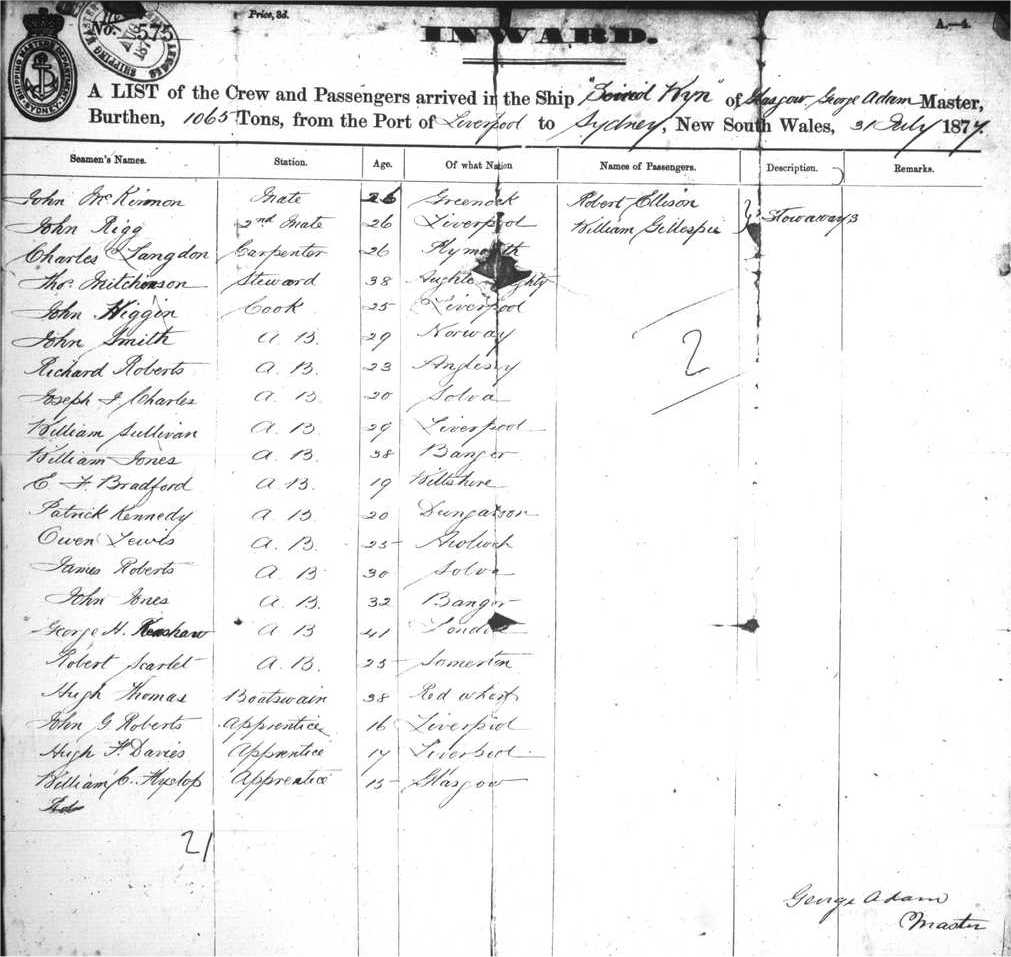 Price, 3d.
No. 575
A.—4.
SHIPPING MASTER'S DEPARTMENT SYDNEY
INWARD.
A LIST of the Crew and Passengers arrived in the Ship " Wyn" of Glasgow George Adam Master,
Burthen, 1065 Tons, from the Port of Liverpool to Sydney, New South Wales, 31 July 1877.
Seamen's Names. Station. Age. Of what Nation Names of Passengers. Description. Remarks.
John McKinnon Mate 26 Greenock Robert Ellison
John Rigg 2nd Mate 26 Liverpool William Gillespie Stowaways
Charles Langdon Carpenter 26 Plymouth
Thos. Mitchinson Steward 38
John Higgin Cook 25 Liverpool
John Smith A. B. 29 Norway
Richard Roberts A. B. 23 Anglesey
Joseph J Charles A. B. 20 Solva
William Sullivan A. B. 29 Liverpool
William Jones A. B. 38 Bangor
E F Bradford A. B. 19 Wiltshire
Patrick Kennedy A. B. 20 Dungarvon
Owen Lewis A. B. 25
James Roberts A. B. 30 Solva
John Jones A. B. 32 Bangor
George H. Renshaw A B 41 London
Robert Scarlet A. B. 25 Somerton
Hugh Thomas Boatswain 38 Red wharf
John G Roberts Apprentice 16 Liverpool
Hugh F. Davies Apprentice 17 Liverpool
William C. Hyslop Apprentice 15 Glasgow
2
21
George Adam
Master